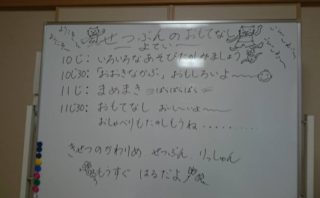 きせつぶんのおもてなし
よてい
10じ：いろいろなあそびたのしみましょう
10じ30：「おおきなかぶ」おもしろいよ〜
11じ：まめまき ぱらぱらぱら
11じ30：おもてなし おーいしーよ〜
おしゃべりもたのしもうね・・・・・・・・・
きせつのかわりめ せつぶん りっしゅん
もうすぐ はるだよ